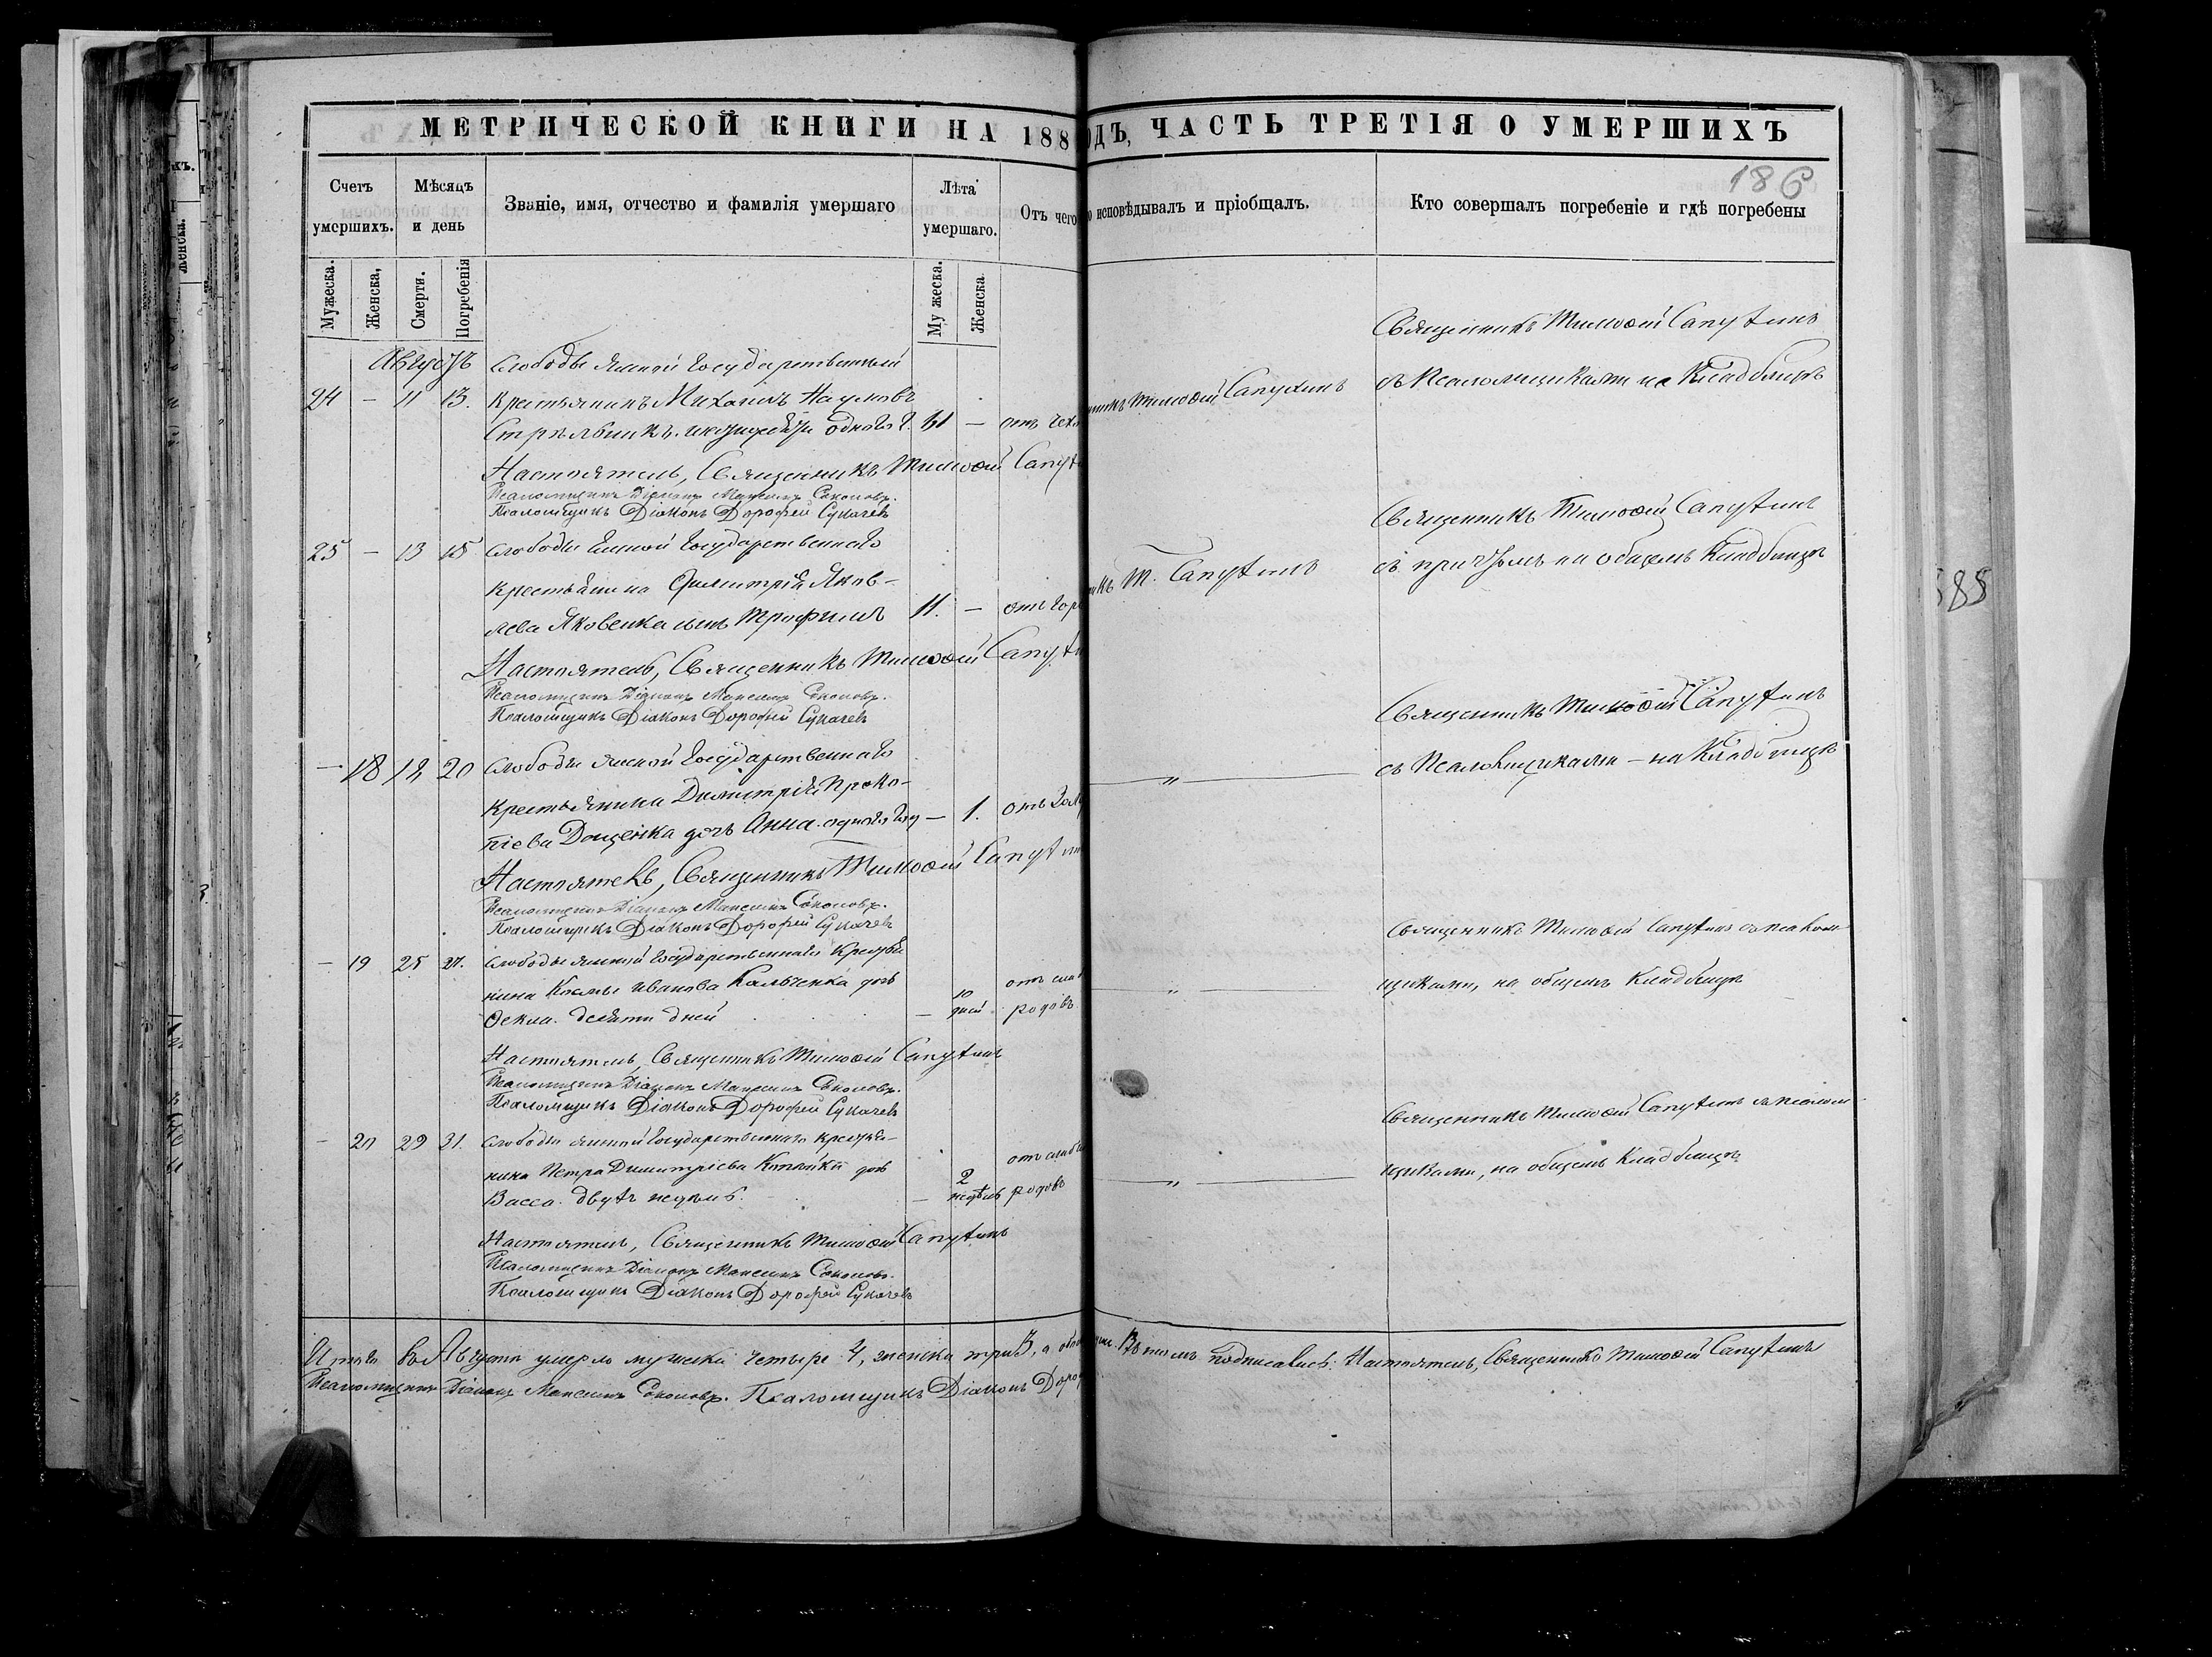 МЕТРИЧЕСКОЙ КНИГИ НА 188
ОДЪ, ЧАСТЬ ТРЕТІЯ О УМЕРШИХЪ
186
Счетъ умершихъ.
Мѣсяцъ и день
Званіе, имя, отчество и фамилія умершаго
Лѣта умершаго.
Отъ чего
о исповѣдывалъ и пріобщалъ.
Кто совершалъ погребеніе и гдѣ погребены
Мужеска.
Женска,
Смерти.
Погребенія
Му жеска.
Женска
Священникъ Тимоѳей Сапухинъ
Августъ Слободы Ямской Государственный
съ Псаломщиками на Кладбищѣ
24 – 11 13. Крестьянинъ Михаилъ Наумовъ
Тимоѳей Сапухинъ
Стрѣльникъ. одного г. 61 – отъ
Настоятель, Священникъ Тимоѳей Сапух
Псаломщикъ Діаконъ Максимъ Соколовъ.
Псаломщикъ Діаконъ Дорофей Сукачевъ
Священникъ Тимоѳей Сапухинъ
25 – 13 15 Слободы Ямской Государственнаго
съ причтомъ на общемъ Кладбищѣ
Крестьянина Димитрія Яков-
Т. Сапухинъ
лева Яковенка сынъ Трофимъ 11. – отъ гор
Настоятель, Священникъ Тимоѳей Сапух
Псаломщикъ Діаконъ Максимъ Соколовъ.
Псаломщикъ Діаконъ Дорофей Сукачевъ
Священникъ Тимоѳей Сапухинъ
– 18 18 20 Слободы Ямской Государственнаго
съ Псаломщиками – на Кладбищѣ
Крестьянина Димитрія Проко-
„
піева Доценка дочь Анна. одного года – 1. отъ
Настоятель, Священникъ Тимоѳей Сапухин
Псаломщикъ Діаконъ Максимъ Соколовъ.
Псаломщикъ Діаконъ Дорофей Сукачевъ
Священникъ Тимоѳей Сапухинъ съ псалом-
– 19 25 27. Слободы Ямской Государственнаго Крестья
щиками, на общемъ Кладбищѣ
нина Космы Иванова Кальченка дочь
отъ слаб
Ѳекла. десяти дней – 10 дней родовъ
„
Настоятель, Священникъ Тимоѳей Сапухинъ
Псаломщикъ Діаконъ Максимъ Соколовъ.
Псаломщикъ Діаконъ Дорофей Сукачевъ
Священникъ Тимоѳей Сапухинъ съ псалом-
– 20 29 31. Слободы Ямской Государственнаго крестья-
щиками, на общемъ Кладбищѣ
нина Петра Димитріева дочь
отъ слаб
Васса. двухъ недѣль. – 2 недѣль родовъ
„
Настоятель, Священникъ Тимоѳей Сапухинъ
Псаломщикъ Діаконъ Максимъ Соколовъ.
Псаломщикъ Діаконъ Дорофей Сукачевъ
Итого въ Августѣ умерло мужеска четыре 4, женска три 3, а обое
Въ томъ подписались: Настоятель, Священникъ Тимоѳей Сапухинъ
Псаломщикъ Діаконъ Максимъ Соколовъ. Псаломщикъ Діаконъ Дороф